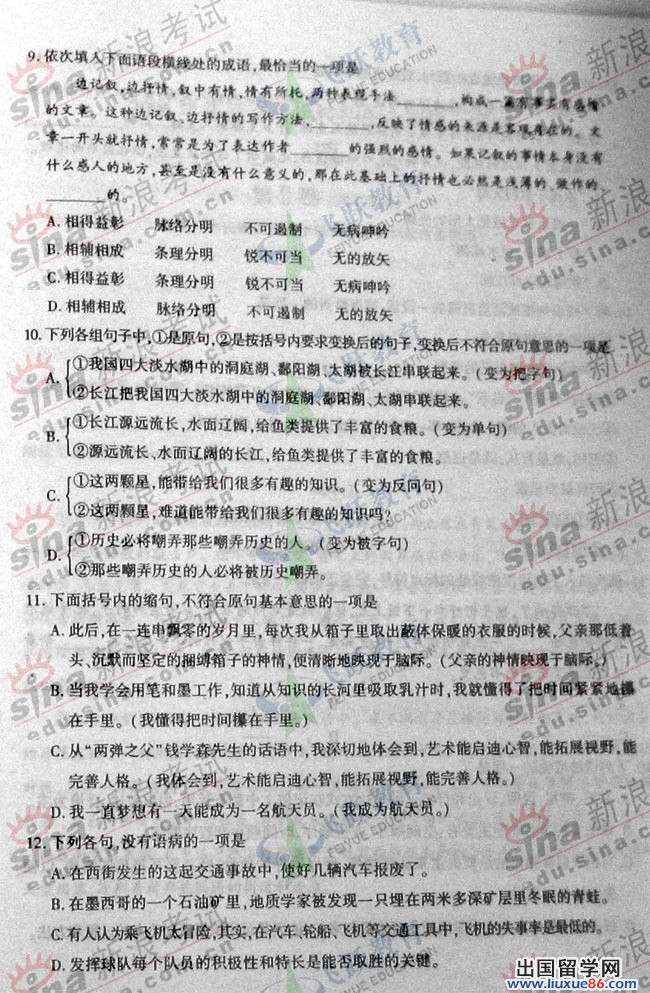 9. 依次填入下面语段横线处的成语,最恰当的一项是
边记叙,边抒情,叙中有情,情有所托,两种表现手法________,构成一篇有事实有感情
的文章。这种边记叙、边抒情的写作方法,________,反映了情感的来源是客观存在的。文
章一开头就抒情,常常是为了表达作者________的强烈的感情。如果记叙的事情本身没有
什么感人的地方,甚至是没有什么意义的,那在此基础上的抒情也必然是浅薄的、做作的、
________的。
A. 相得益彰 脉络分明 不可遏制 无病呻吟
B. 相辅相成 条理分明 锐不可当 无的放矢
C. 相得益彰 条理分明 锐不可当 无病呻吟
D. 相辅相成 脉络分明 不可遏制 无的放矢
10. 下列各组句子中,①是原句,②是按括号内要求变换后的句子,变换后不符合原句意思的一项是
A. ①我国四大淡水湖中的洞庭湖、鄱阳湖、太湖被长江串联起来。(变为把字句)
②长江把我国四大淡水湖中的洞庭湖、鄱阳湖、太湖串联起来。
B. ①长江源远流长、水面辽阔,给鱼类提供了丰富的食粮。(变为单句)
②源远流长、水面辽阔的长江,给鱼类提供了丰富的食粮。
C. ①这两颗星,能带给我们很多有趣的知识。(变为反问句)
②这两颗星,难道能带给我们很多有趣的知识吗?
D. ①历史必将嘲弄那些嘲弄历史的人。(变为被字句)
②那些嘲弄历史的人必将被历史嘲弄。
11. 下面括号内的缩句,不符合原句基本意思的一项是
A. 此后,在一连串飘零的岁月里,每次我从箱子里取出蔽体保暖的衣服的时候,父亲那低着
头、沉默而坚定的捆缚箱子的神情,便清晰地映现于脑际。(父亲的神情映现于脑际。)
B. 当我学会用笔和墨工作,知道从知识的长河里吸取乳汁时,我就懂得了把时间紧紧地攥
在手里。(我懂得把时间攥在手里。)
C. 从“两弹之父”钱学森先生的话语中,我深切地体会到,艺术能启迪心智,能拓展视野,能
完善人格。(我体会到,艺术能启迪心智,能拓展视野,能完善人格。)
D. 我一直梦想有一天能成为一名航天员。(我成为航天员。)
12. 下列各句,没有语病的一项是
A. 在西街发生的这起交通事故中,使好几辆汽车报废了。
B. 在墨西哥的一个石油矿里,地质学家被发现一只埋在两米多深矿层里冬眠的青蛙。
C. 有人认为乘飞机太冒险,其实,在汽车、轮船、飞机等交通工具中,飞机的失事率是最低的。
D. 发挥球队每个队员的积极性和特长是能否取胜的关键。
出国留学网
www.liuxue86.com